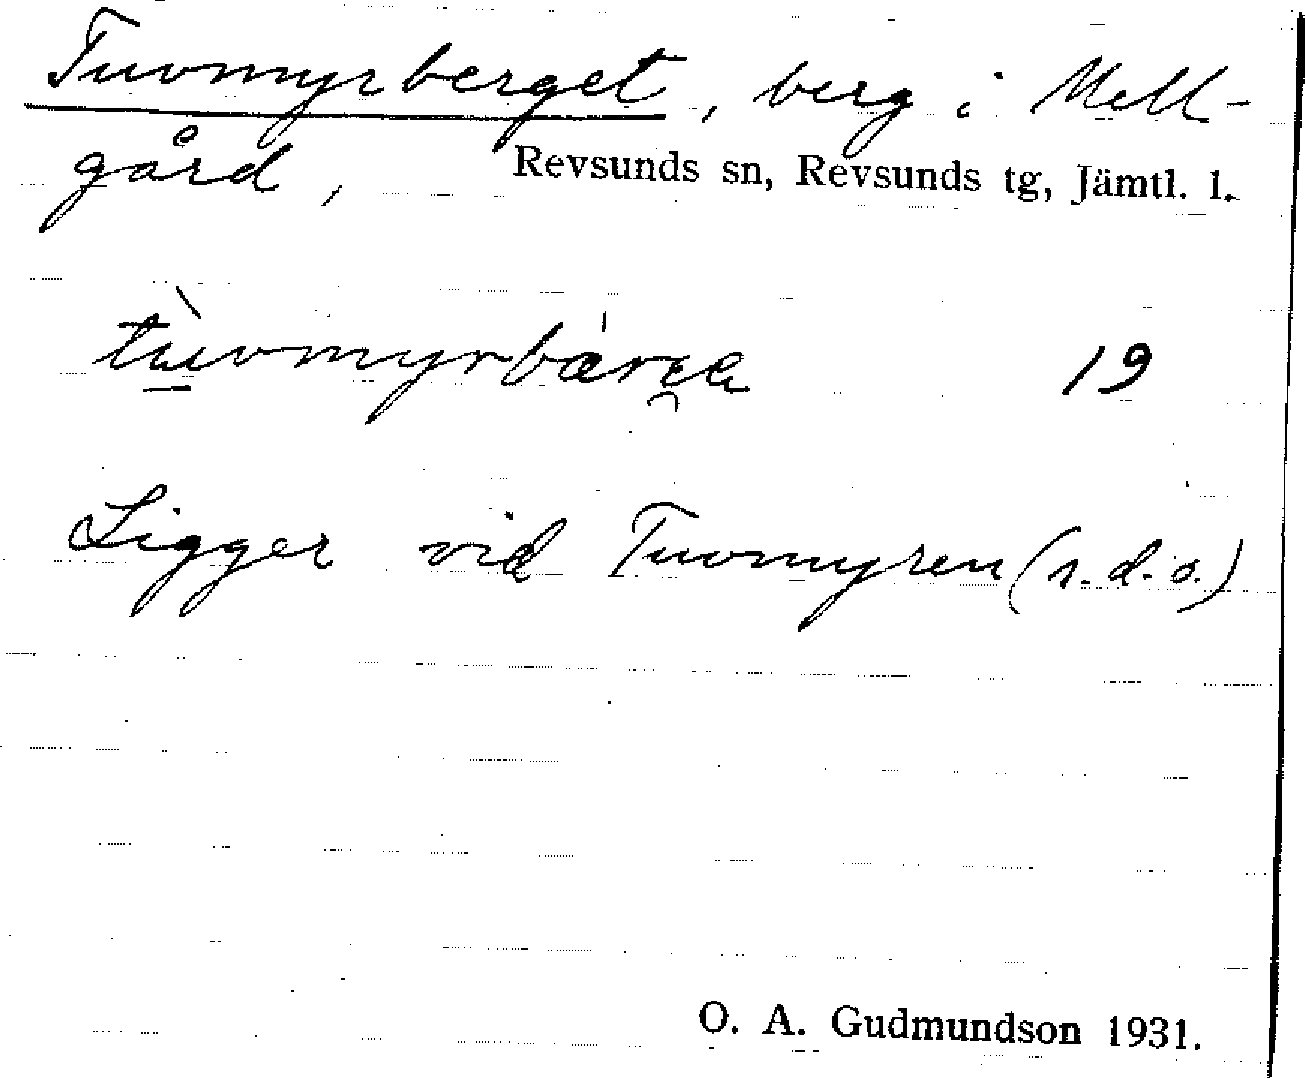 Tuvmyrberget, berg i Mell-
gård, Revsunds sn, Revsunds tg, Jämtl. l.
19
Ligger vid Tuvmyren (s.d.o.)
O. A. Gudmundson 1931.